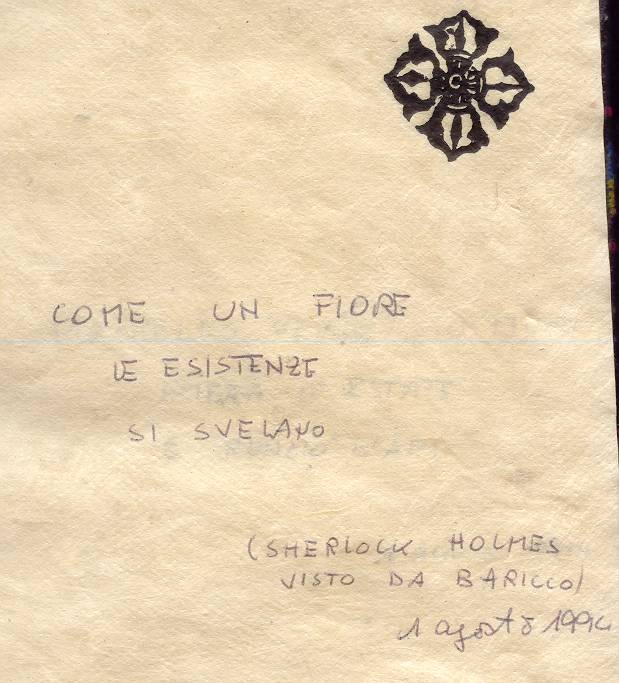 COME UN FIORE
LE ESISTENZE
SI SVELANO
(SHERLOCK HOLMES
VISTO DA BARICCO)
1 agosto 1994